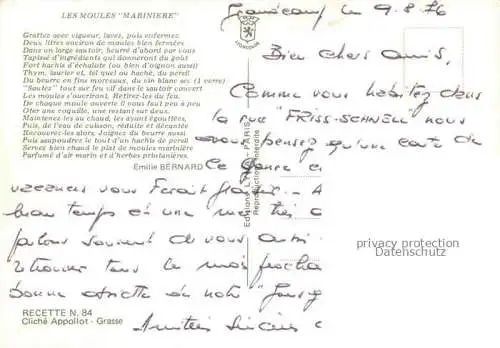 LES MOULES "MARINIERE"
Grattez avec vigueur, lavez, puis enfermez
Deux litres environ de moules bien fermées
Dans un large sautoir, beurré d'abord par vous
Tapissé d'ingrédients qui donneront du goût
Fort hachis d'échalote (ou bien d'oignon aussi)
Thym, laurier, et tel quel ou haché, du persil
Du beurre en fins morceaux, du vin blanc sec (1 verre)
"Sautez" tout sur feu vif dans le sautoir couvert
Les moules s'ouvriront. Retirez-les du feu.
De chaque moule ouverte il nous faut peu à peu
Oter une coquille, une restant sur deux.
Maintenez-les au chaud, les ayant égouttées,
Puis, de l'eau de cuisson, réduite et décantée
Recouvrez-les alors. Joignez du beurre aussi
Puis saupoudrez le tout d'un hachis de persil
Servez bien chaud le plat de moules marinière
Parfumé d'air marin et d'herbes printanières.
Emilie BERNARD
RECETTE N. 84
Cliché Appollot - Grasse
Editions - PARIS
Reproduction interdite
le 9.8.76
Bien chers amis,
Comme vous habitez dans
la rue "FRISS-SCHNELL" nous
pensez qu'une carte de
ce genre
vacances vous ferait plaisir - A
beau temps et une mer très
parlons souvent de vous aussi
retrouver tous le mois procha
bonne de notre
Amitiés Sincères
privacy protection
Datenschutz